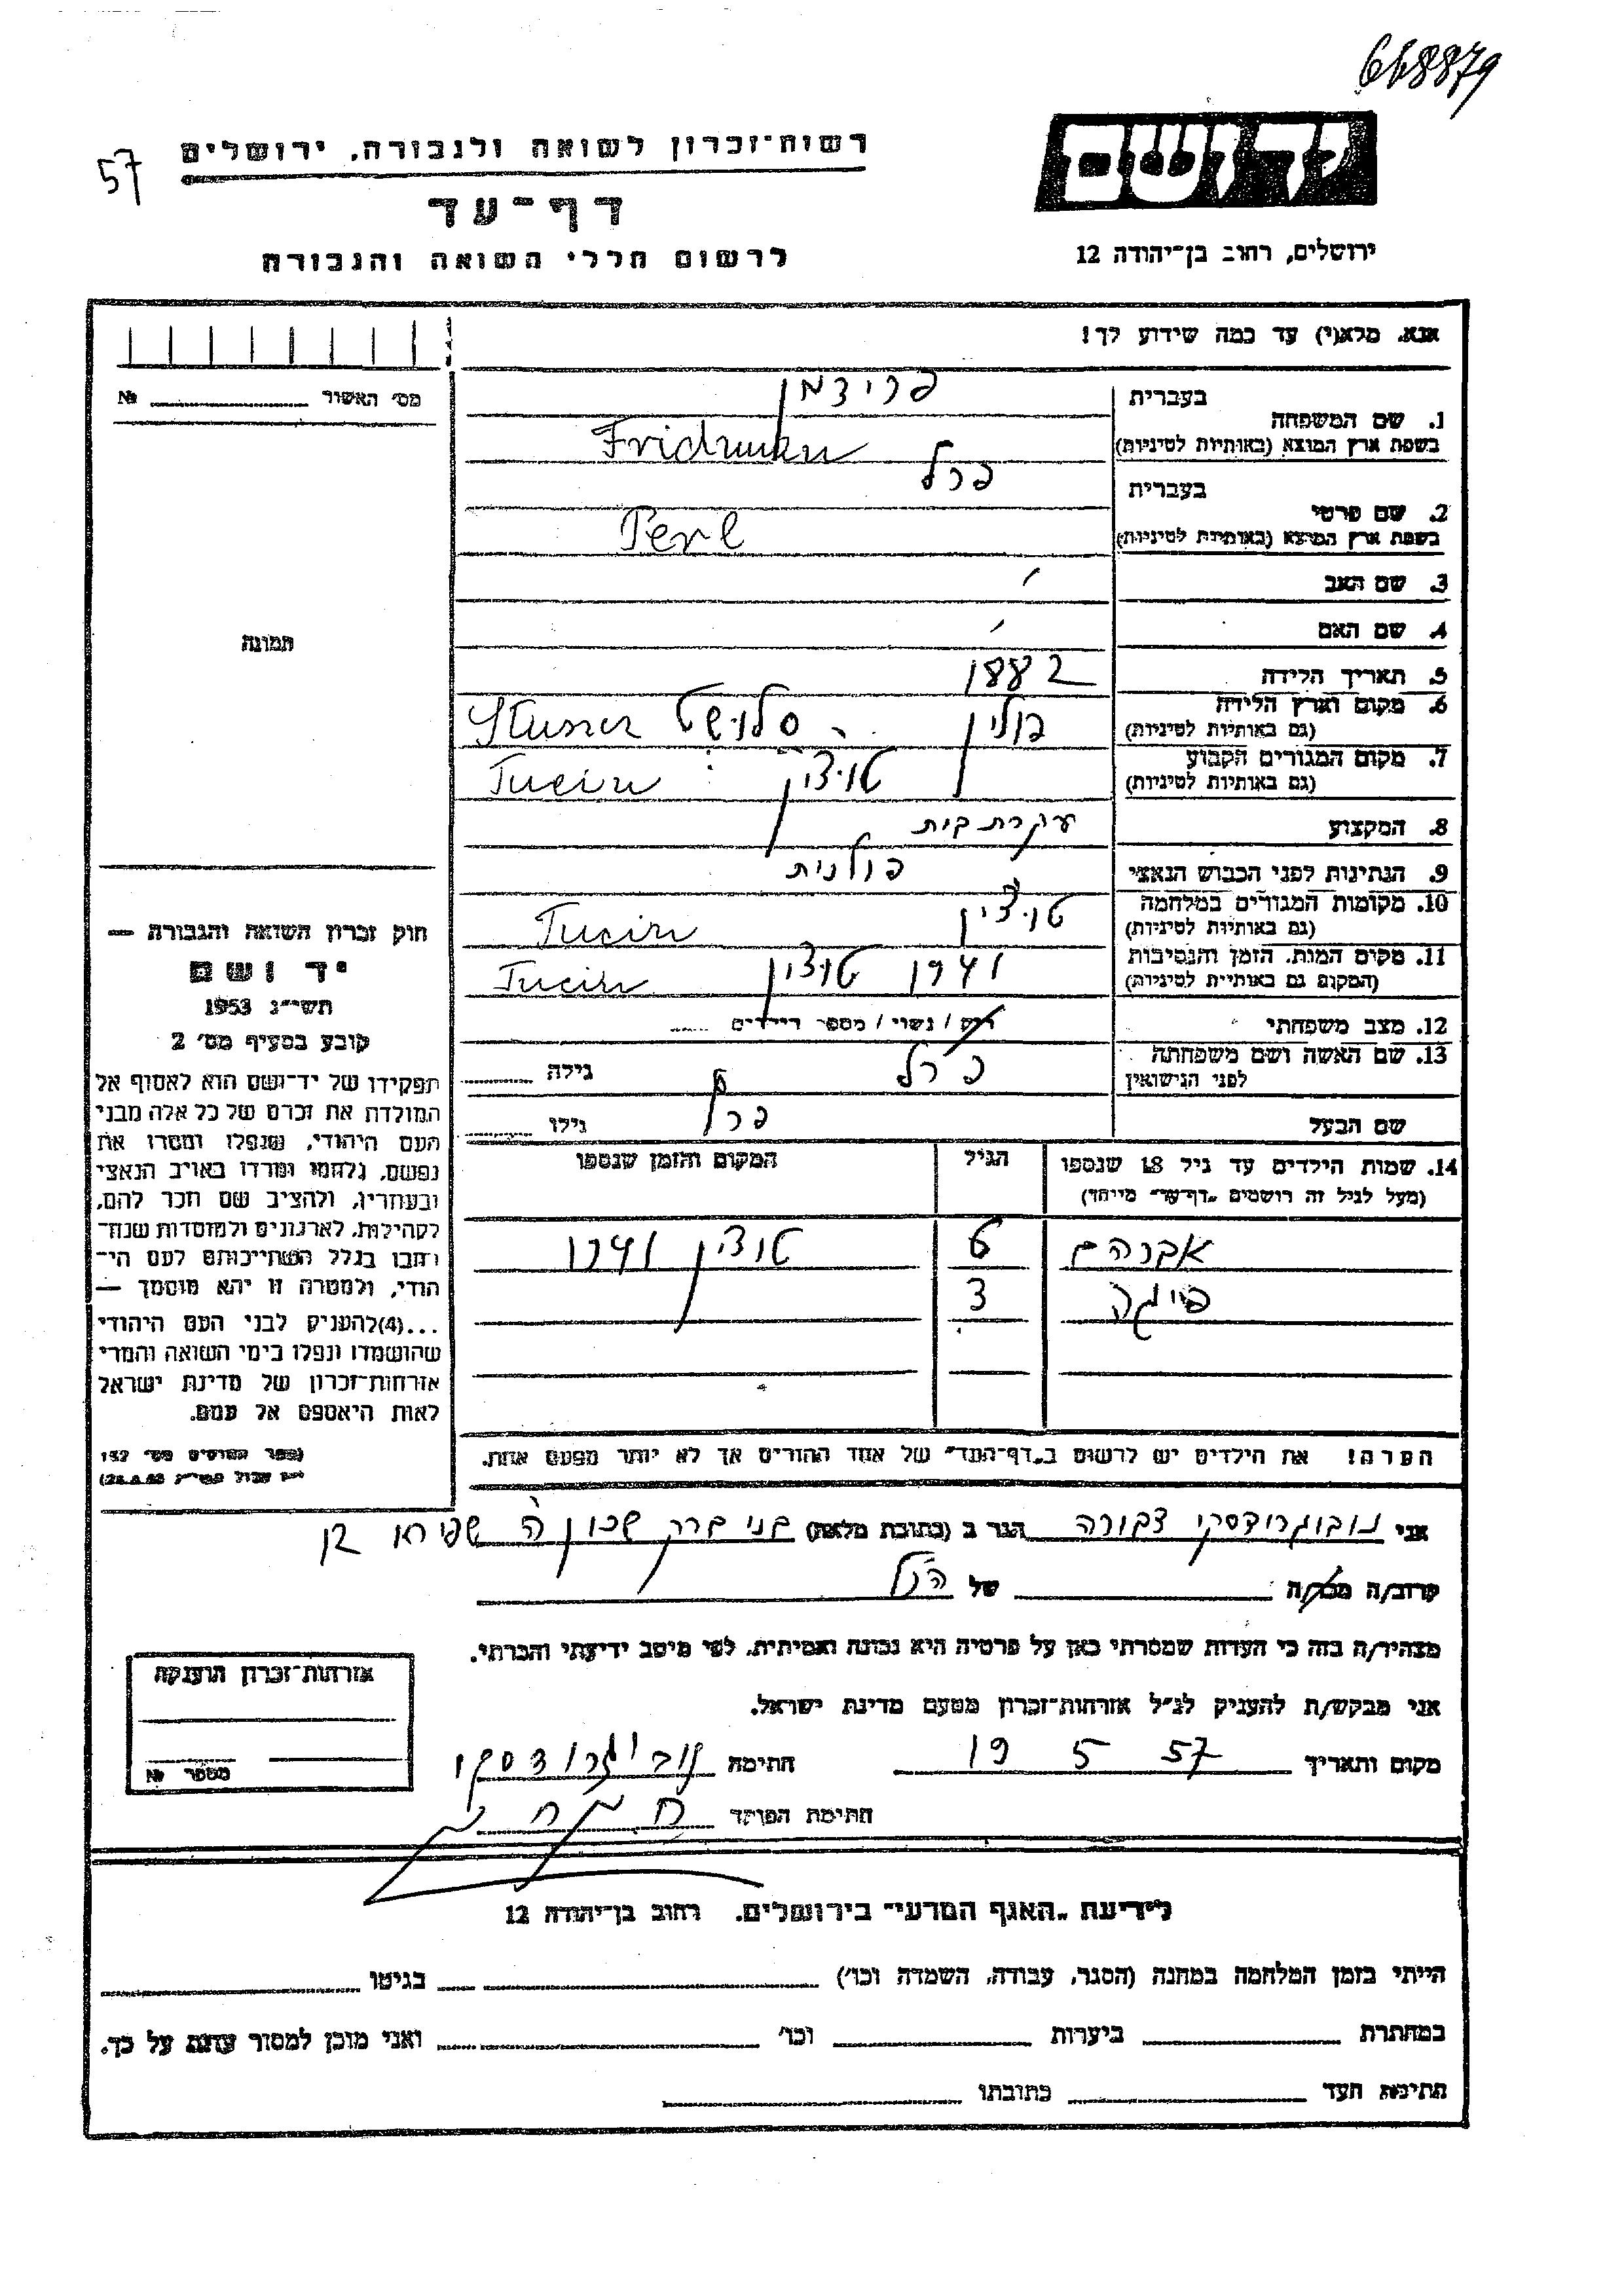 668879
57
רשות־זכרון לשואה ולגבורה, ירושלים
דף־עד
לרשום חללי השואה והגבורה
יד ושם
ירושלים, רחוב בן־יהודה 12
אנא, מלא(י) עד כמה שידוע לך!
מס' האשור № 
תמונה
1. שם המשפחה
בעברית פרידמן
בשפת ארץ המוצא (באותיות לטיניות) Fridman
2. שם פרטי
בעברית פרל
בשפת ארץ המוצא (באותיות לטיניות) Perl
3. שם האב
4. שם האם
5. תאריך הלידה 1882
6. מקום וארץ הלידה פולין
(גם באותיות לטיניות)
7. מקום המגורים הקבוע טוצין Tucin
(גם באותיות לטיניות)
8. המקצוע עקרת בית
9. הנתינות לפני הכבוש הנאצי פולנית
10. מקומות המגורים במלחמה טוצין Tucin
(גם באותיות לטיניות)
11. מקום המות, הזמן והנסיבות 1941 טוצין Tucin
(המקום גם באותיות לטיניות)
12. מצב משפחתי רוק / נשוי / מספר הילדים
13. שם האשה ושם משפחתה פרל גילה
לפני הנישואין
שם הבעל פרל גילו
14. שמות הילדים עד גיל 18 שנספו הגיל המקום והזמן שנספו
(מעל לגיל זה רושמים "דף־עד" מייחד)
אברהם 6 טוצין 1941
פייגה 3
הערה! את הילדים יש לרשום ב"דף־העד" של אחד ההורים אך לא יותר מפעם אחת.
חוק זכרון השואה והגבורה —
יד ושם
תשי"ג 1953
קובע בסעיף מס' 2
תפקידו של יד־ושם הוא לאסוף אל
המולדת את זכרם של כל אלה מבני
העם היהודי, שנפלו ומסרו את
נפשם, נלחמו ומרדו באויב הנאצי
ובעוזריו, ולהציב שם וזכר להם,
לקהילות, לארגונים ולמוסדות שנח־
רבו בגלל השתייכותם לעם הי־
הודי, ולמטרה זו יהא מוסמך —
...(4) להעניק לבני העם היהודי
שהושמדו ונפלו בימי השואה והמרי
אזרחות־זכרון של מדינת ישראל
לאות היאספם אל עמם.
(ספר החוקים מס' 132
אני נובוגרודסקי צפורה הגר ב (כתובת מלאה) בני ברק שכון ה שפירא
קרוב/ה מכר/ה של הנ"ל
מצהיר/ה בזה כי העדות שמסרתי כאן על פרטיה היא נכונה ואמיתית, לפי מיטב ידיעתי והכרתי.
אני מבקש/ת להעניק לנ"ל אזרחות־זכרון מטעם מדינת ישראל.
מקום ותאריך 19 5 57 חתימה נובוגרודסקי
חתימת הפוקד
אזרחות־זכרון הוענקה
מספר №
לידיעת "האגף המדעי" בירושלים, רחוב בן־יהודה 12
הייתי בזמן המלחמה במחנה (הסגר, עבודה, השמדה וכו') בגיטו
במחתרת ביערות וכו' ואני מוכן למסור עדות על כך.
חתימת העד כתובתו